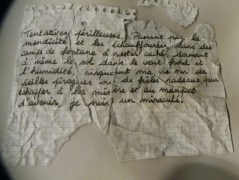 Tentatives périlleuses. Passant par la
mendicité et les échauffourées dans des
camps de fortune à rester caché, dormant
à même le sol dans le vent froid et
l'humidité, risquant ma vie sur de
vieilles pirogues ou de frêles radeaux pour
échapper à la misère et au manque
d'avenir, je suis un miraculé.